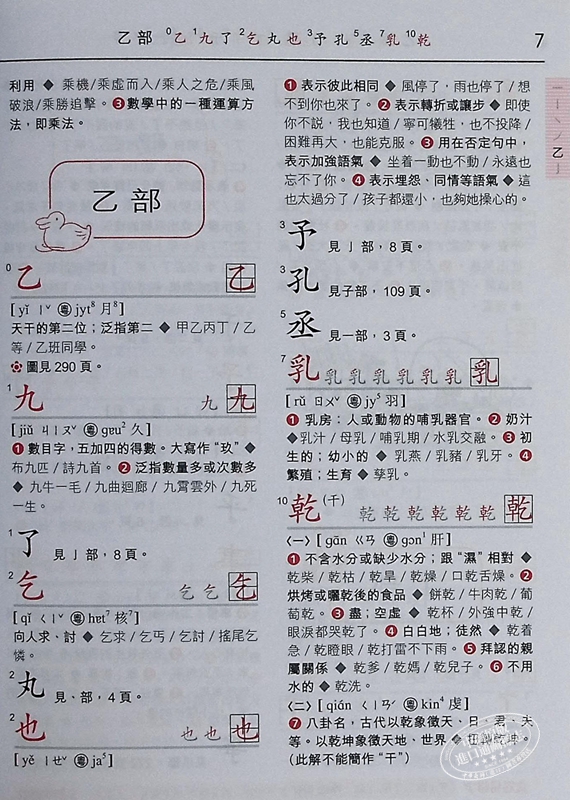 乙部 ⁰乙 ¹九了 ²乞丸也 ³予孔 ⁵丞 ⁷乳 ¹⁰乾
7
利用 ◆ 乘機/乘虛而入/乘人之危/乘風
破浪/乘勝追擊。❸數學中的一種運算方
法，即乘法。
乙部
⁰乙 乙
[yǐ ㄧˇ 粵 jyt⁸ 月⁸]
天干的第二位；泛指第二 ◆ 甲乙丙丁/乙
等/乙班同學。
圖見 290 頁。
¹九 九九
[jiǔ ㄐㄧㄡˇ 粵 gɐu² 久]
❶數目字，五加四的得數。大寫作“玖” ◆
布九匹/詩九首。❷泛指數量多或次數多
◆ 九牛一毛/九曲迴廊/九霄雲外/九死
一生。
¹了 見亅部，8 頁。
²乞 乞乞乞
[qǐ ㄑㄧˇ 粵 het⁷ 核⁷]
向人求、討 ◆ 乞求/乞丐/乞討/搖尾乞
憐。
²丸 見丶部，4 頁。
²也 也也也
[yě ㄧㄝˇ 粵 ja⁵]
❶表示彼此相同 ◆ 風停了，雨也停了/想
不到你也來了。❷表示轉折或讓步 ◆ 即使
你不說，我也知道/寧可犧牲，也不投降/
困難再大，也能克服。❸用在否定句中，
表示加強語氣 ◆ 坐着一動也不動/永遠也
忘不了你。❹表示埋怨、同情等語氣 ◆ 這
也太過分了/孩子都還小，也夠她操心的。
³予 見亅部，8 頁。
³孔 見子部，109 頁。
⁵丞 見一部，3 頁。
⁷乳 乳乳乳乳乳乳乳
[rǔ ㄖㄨˇ 粵 jy⁵ 羽]
❶乳房：人或動物的哺乳器官。❷奶汁
◆乳汁/母乳/哺乳期/水乳交融。❸初
生的；幼小的 ◆ 乳燕/乳豬/乳牙。❹
繁殖；生育 ◆ 孳乳。
¹⁰乾(干) 乾乾乾乾乾乾乾
〈一〉[gān ㄍㄢ 粵 gɔn¹ 肝]
❶不含水分或缺少水分；跟“濕”相對 ◆
乾柴/乾枯/乾旱/乾燥/口乾舌燥。❷
烘烤或曬乾後的食品 ◆ 餅乾/牛肉乾/葡
萄乾。❸盡；空虛 ◆ 乾杯/外強中乾/
眼淚都哭乾了。❹白白地；徒然 ◆ 乾着
急/乾瞪眼/乾打雷不下雨。❺拜認的親
屬關係 ◆ 乾爹/乾媽/乾兒子。❻不用
水的 ◆ 乾洗。
〈二〉[qián ㄑㄧㄢˊ 粵 kin⁴ 虔]
❼八卦名，古代以乾象徵天、日、君、夫
等。以乾坤象徵天地、世界 ◆ 扭轉乾坤。
(此解不能簡作“干”)
一
丨
丶
丿
乙
亅